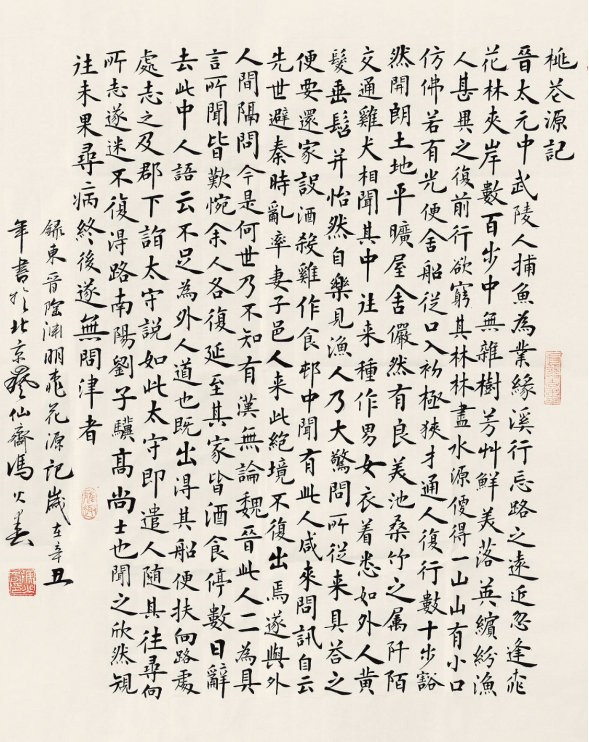 桃花源記
晉太元中武陵人捕魚為業緣溪行忘路之遠近忽逢桃
花林夾岸數百步中無雜樹芳艸鮮美落英繽紛漁
人甚異之復前行欲窮其林林盡水源便得一山山有小口
仿佛若有光便舍船從口入初極狹才通人復行數十步豁
然開朗土地平曠屋舍儼然有良美池桑竹之属阡陌
交通雞犬相聞其中往来種作男女衣着悉如外人黄
髮垂髫并怡然自樂見漁人乃大驚問所從来具荅之
便要還家設酒殺雞作食邨中聞有此人咸来問訊自云
先世避秦時亂率妻子邑人来此絶境不復出焉遂與外
人間隔問今是何世乃不知有漢無論魏晉此人二為具
言所聞皆歎惋余人各復延至其家皆酒食停數日辭
去此中人語云不足為外人道也既出得其船便扶向路處
處志之及郡下詣太守説如此太守即遣人随其往尋向
所志遂迷不復得路南陽劉子驥高尚士也聞之欣然規
往未果尋病終後遂無問津者
録東晉陶淵明桃花源記歲在辛丑
年書於北京藝仙齋馮